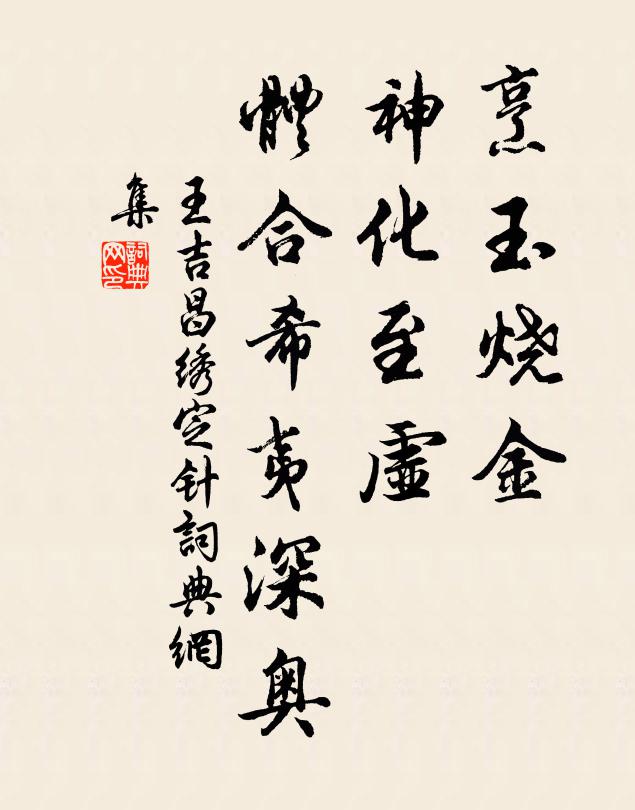 烹玉烧金
神化至虛
體合希夷深奥
王吉昌绣定针詞典網
集
詞典网印